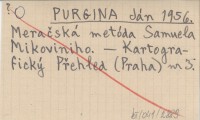 PURGINA Ján 1956.
Meračská metóda Samuela
Mikovíniho. — Kartogra-
fický Přehled (Praha) nr 3.